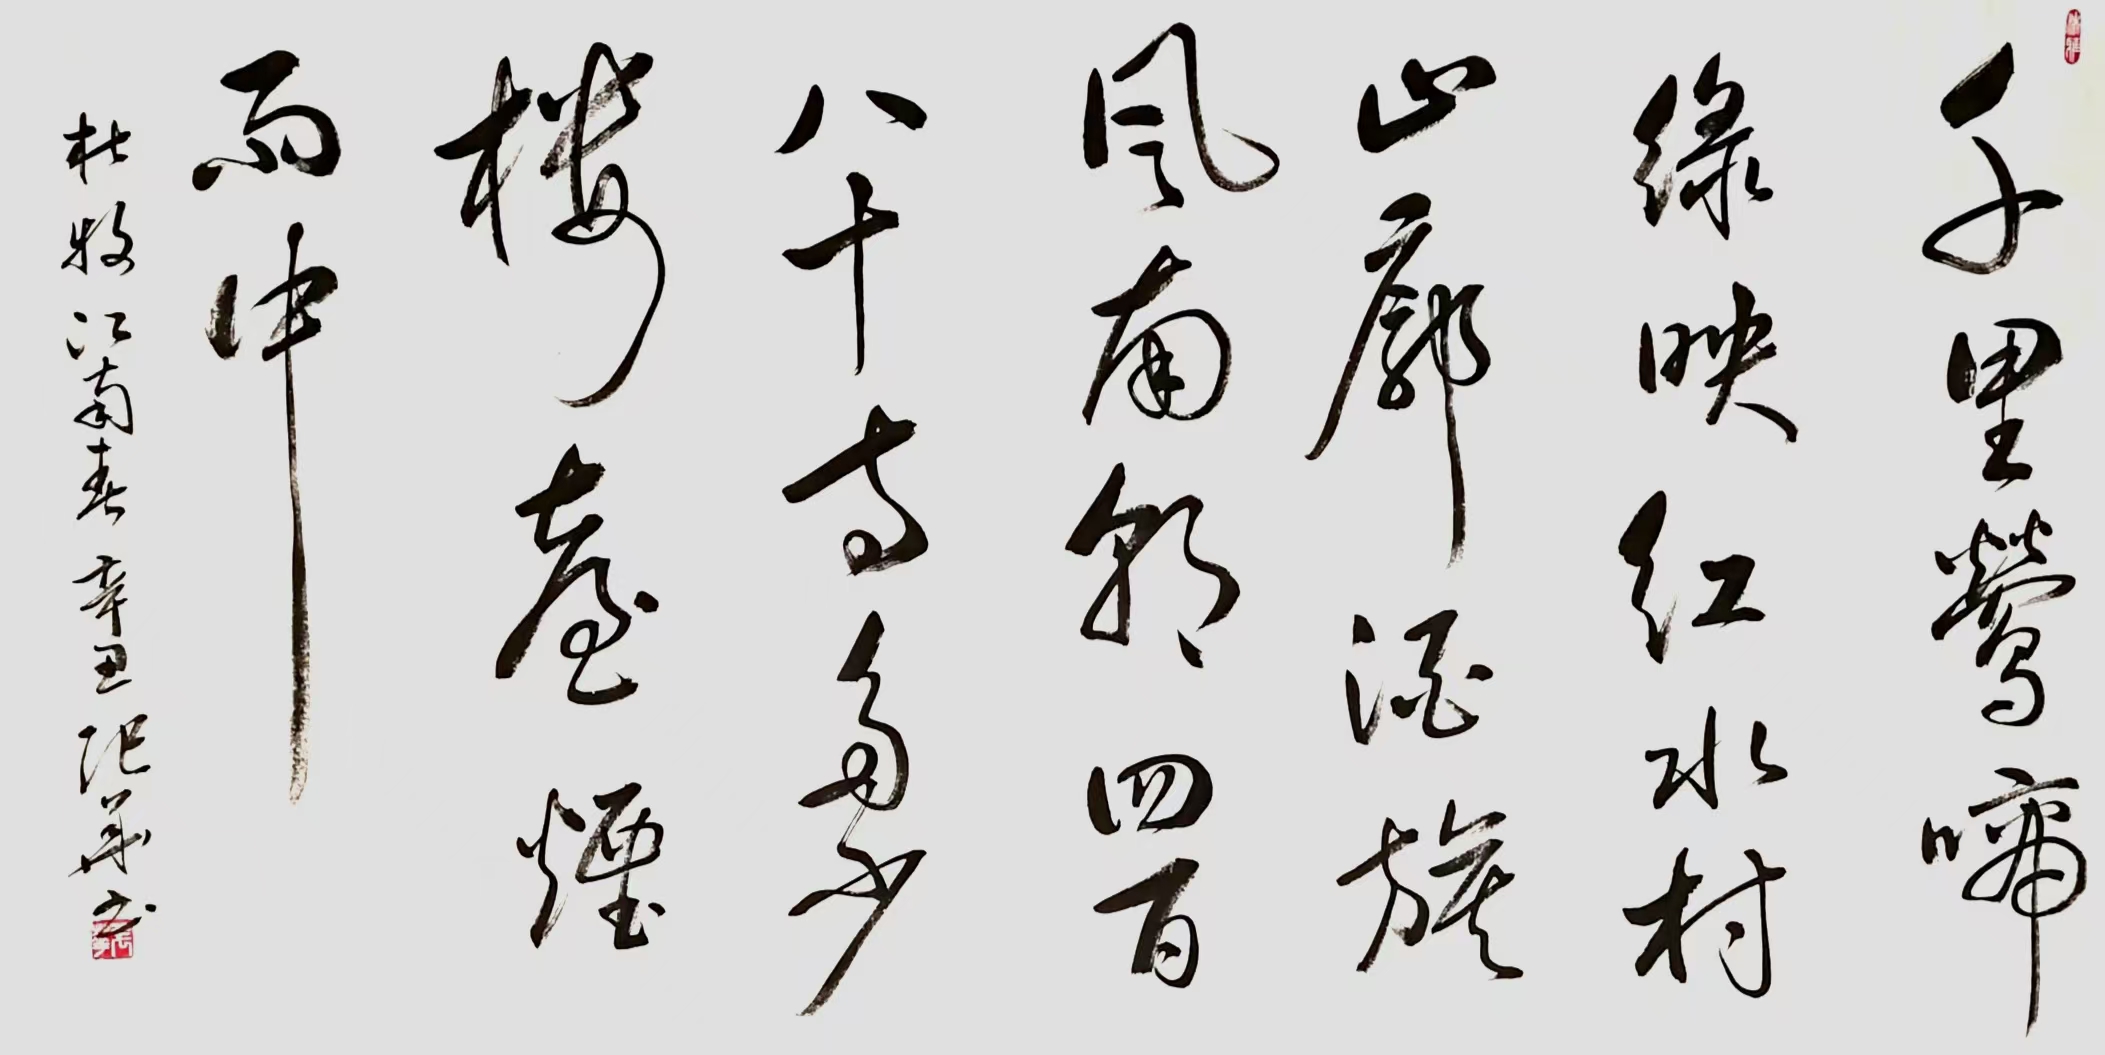 千里鶯啼
綠映红水村
山廓酒旗
风南朝四百
八十寺多少
楼臺煙
雨中
杜牧江南春 辛丑 张华书